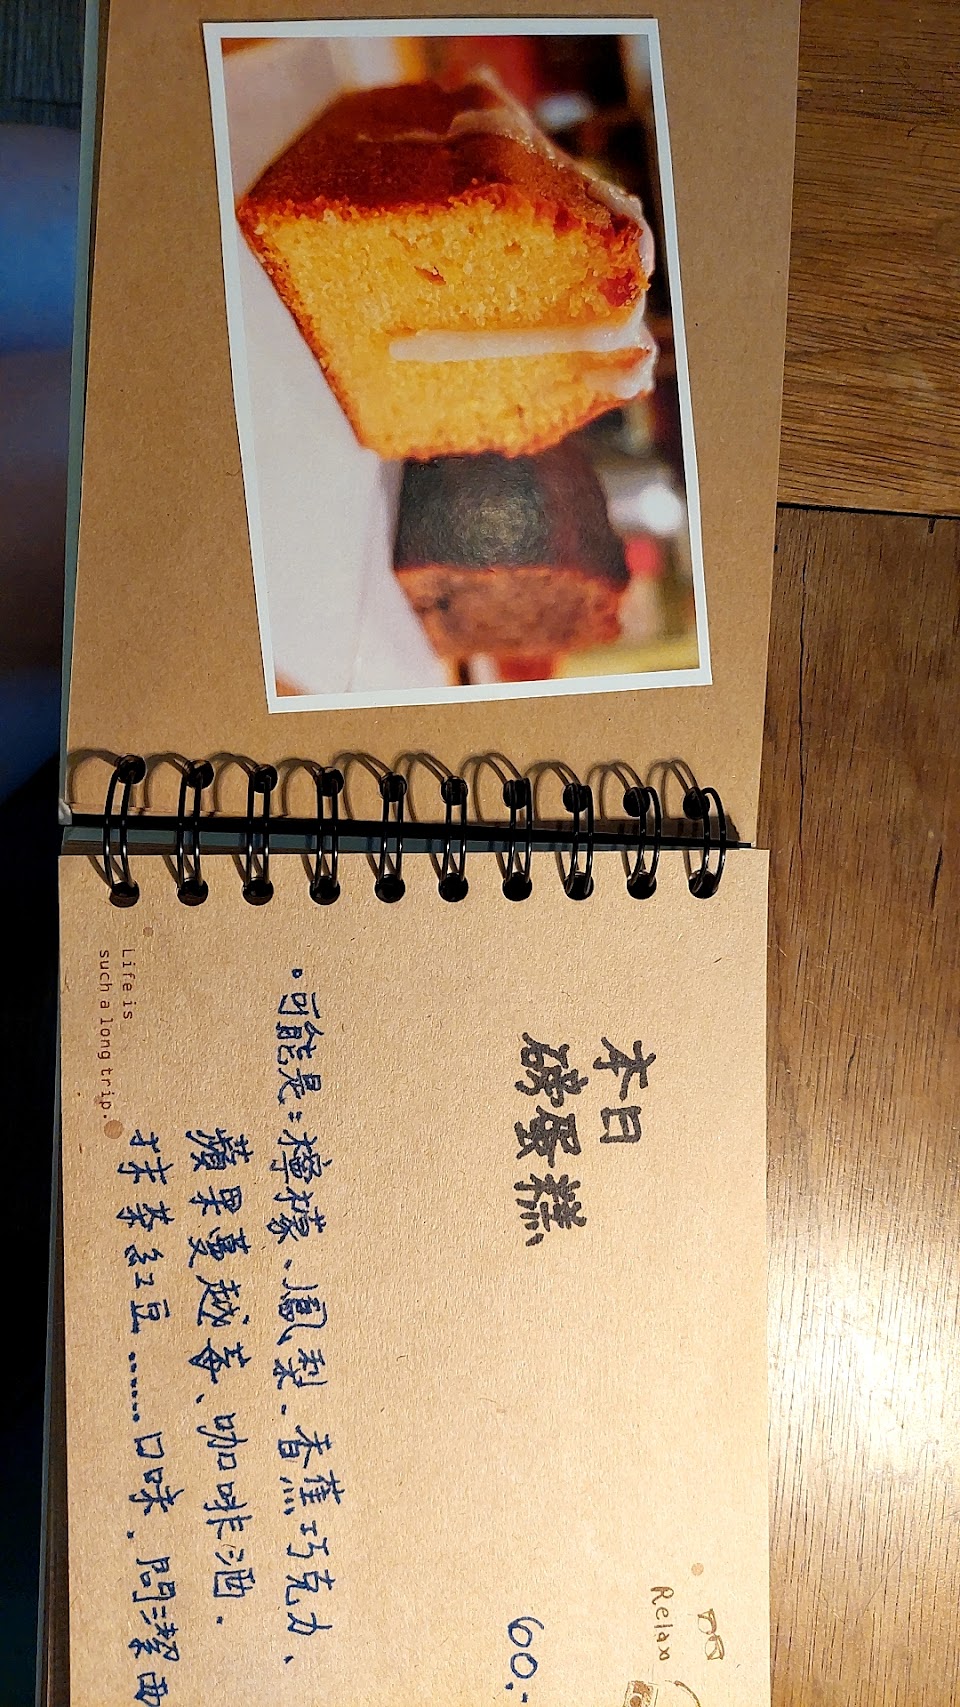 Relax
本日
磅蛋糕
60.-
•可能是：檸檬、鳳梨、香蕉巧克力、
蘋果蔓越莓、咖啡酒.
抹茶紅豆……口味. 問潔西
Life is
such a long trip.